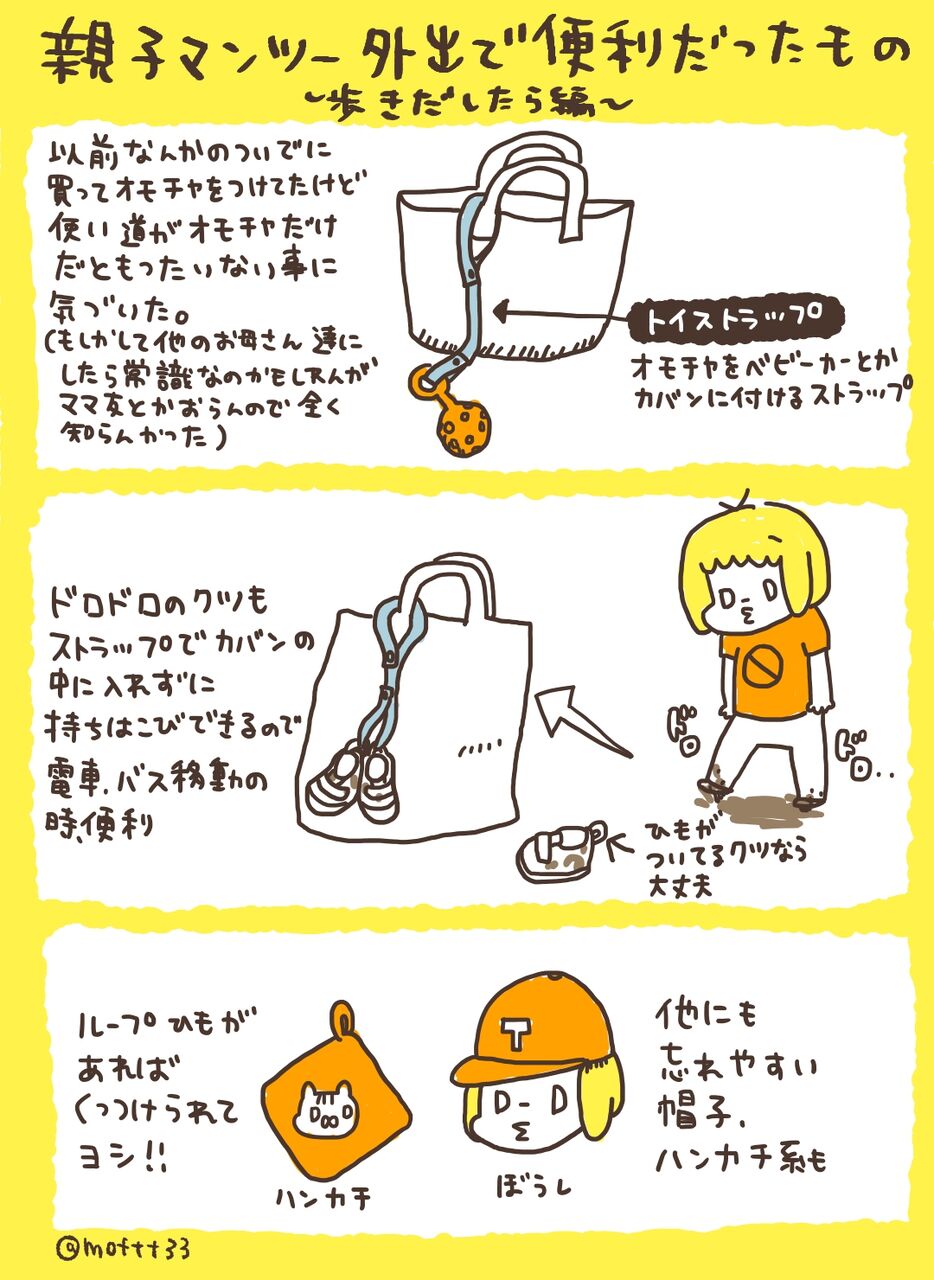 親子マンツー外出で便利だったもの
~歩きだしたら編~
以前なんかのついでに
買ってオモチャをつけてたけど
使い道がオモチャだけ
だともったいない事に
気づいた。
(もしかして他のお母さん達に
したら常識なのかもしれんが
ママ友とかおらんので全く
知らんかった)
トイストラップ
オモチャをベビーカーとか
カバンに付けるストラップ
ドロドロのクツも
ストラップでカバンの
中に入れずに
持ちはこびできるので
電車、バス移動の
時、便利
ドロ
ドロ..
ひもが
ついてるクツなら
大丈夫
ループひもが
あれば
くっつけられて
ヨシ!!
ハンカチ
T
ぼうし
他にも
忘れやすい
帽子、
ハンカチ系も
@moftt33